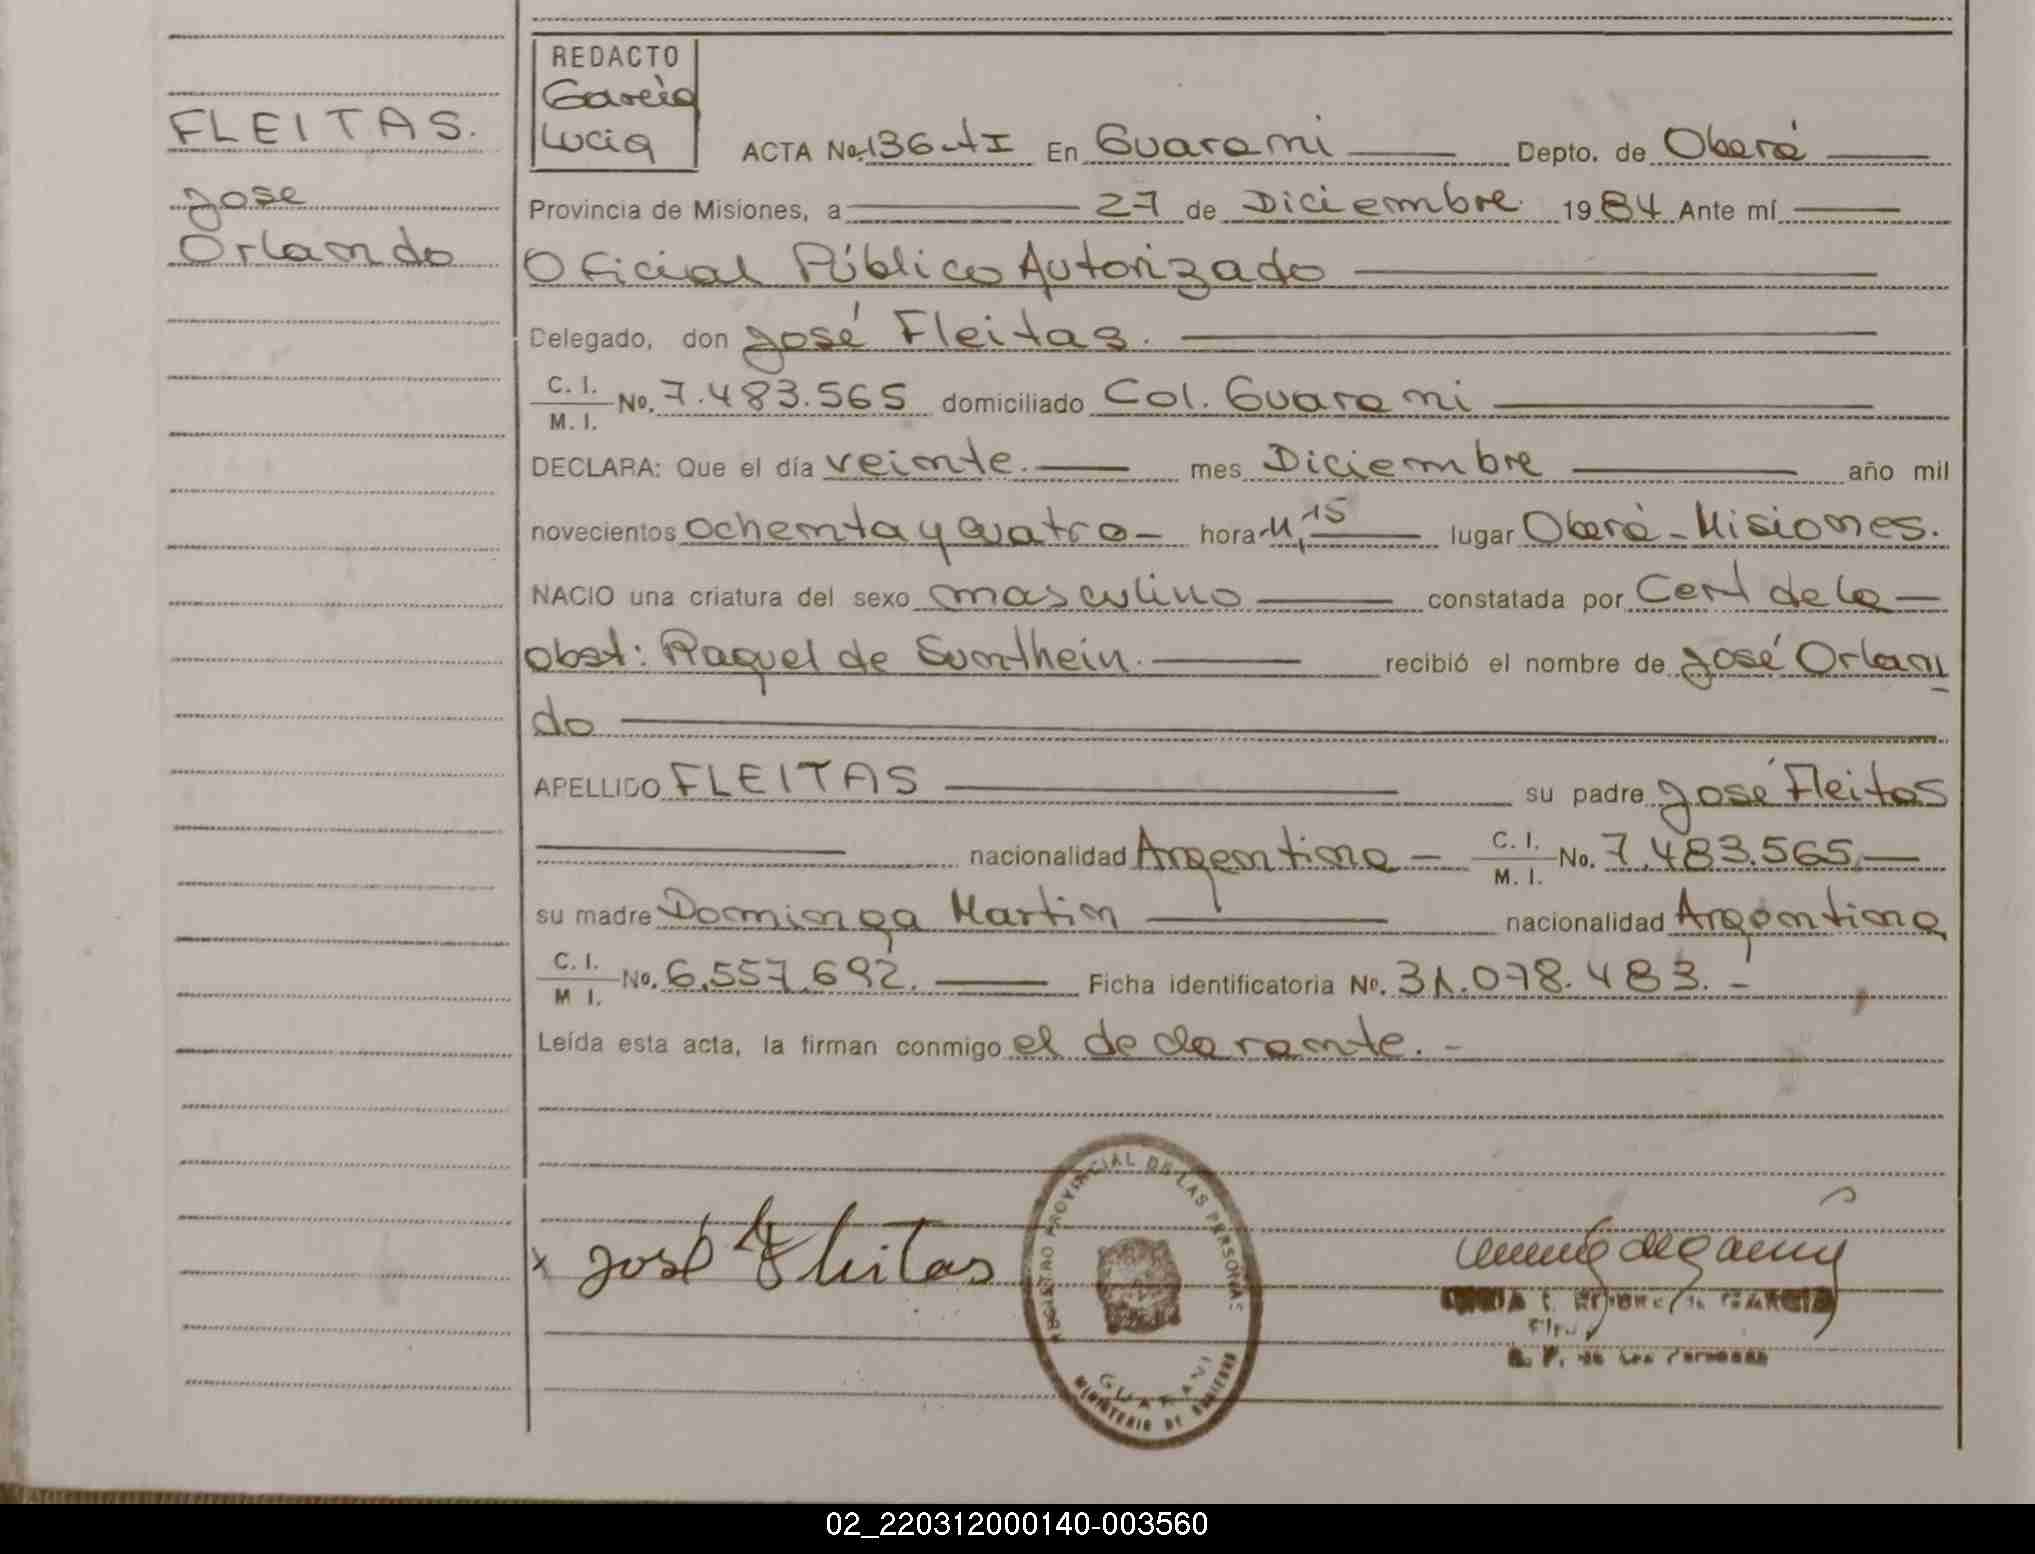 FLEITAS.
José
Orlando
REDACTO
García
Lucia
ACTA No. 136-tI En Guarani Depto. de Oberá
Provincia de Misiones, a 27 de Diciembre 1984 Ante mí
Oficial Público Autorizado
Delegado, don José Fleitas.
C. I.
M. I. No. 7.483.565 domiciliado Col. Guarani
DECLARA: Que el día veinte. mes Diciembre año mil
novecientos ochenta y cuatro- hora 11,15 lugar Oberá-Misiones.
NACIO una criatura del sexo masculino constatada por Cert de la
obst: Raquel de Sunthein. recibió el nombre de José Orlan
do
APELLIDO FLEITAS su padre José Fleitas
nacionalidad Argentina - C. I.
M. I. No. 7.483.565.
su madre Dominga Martin nacionalidad Argentina
C. I.
M I. No. 6.557.692. Ficha identificatoria No. 31.078.483.-
Leída esta acta, la firman conmigo el declarante.-
x José Fleitas
REGISTRO PROVINCIAL DE LAS PERSONAS
GUARANI
MINISTERIO DE GOBIERNO
R. P. de las Personas
02_220312000140-003560